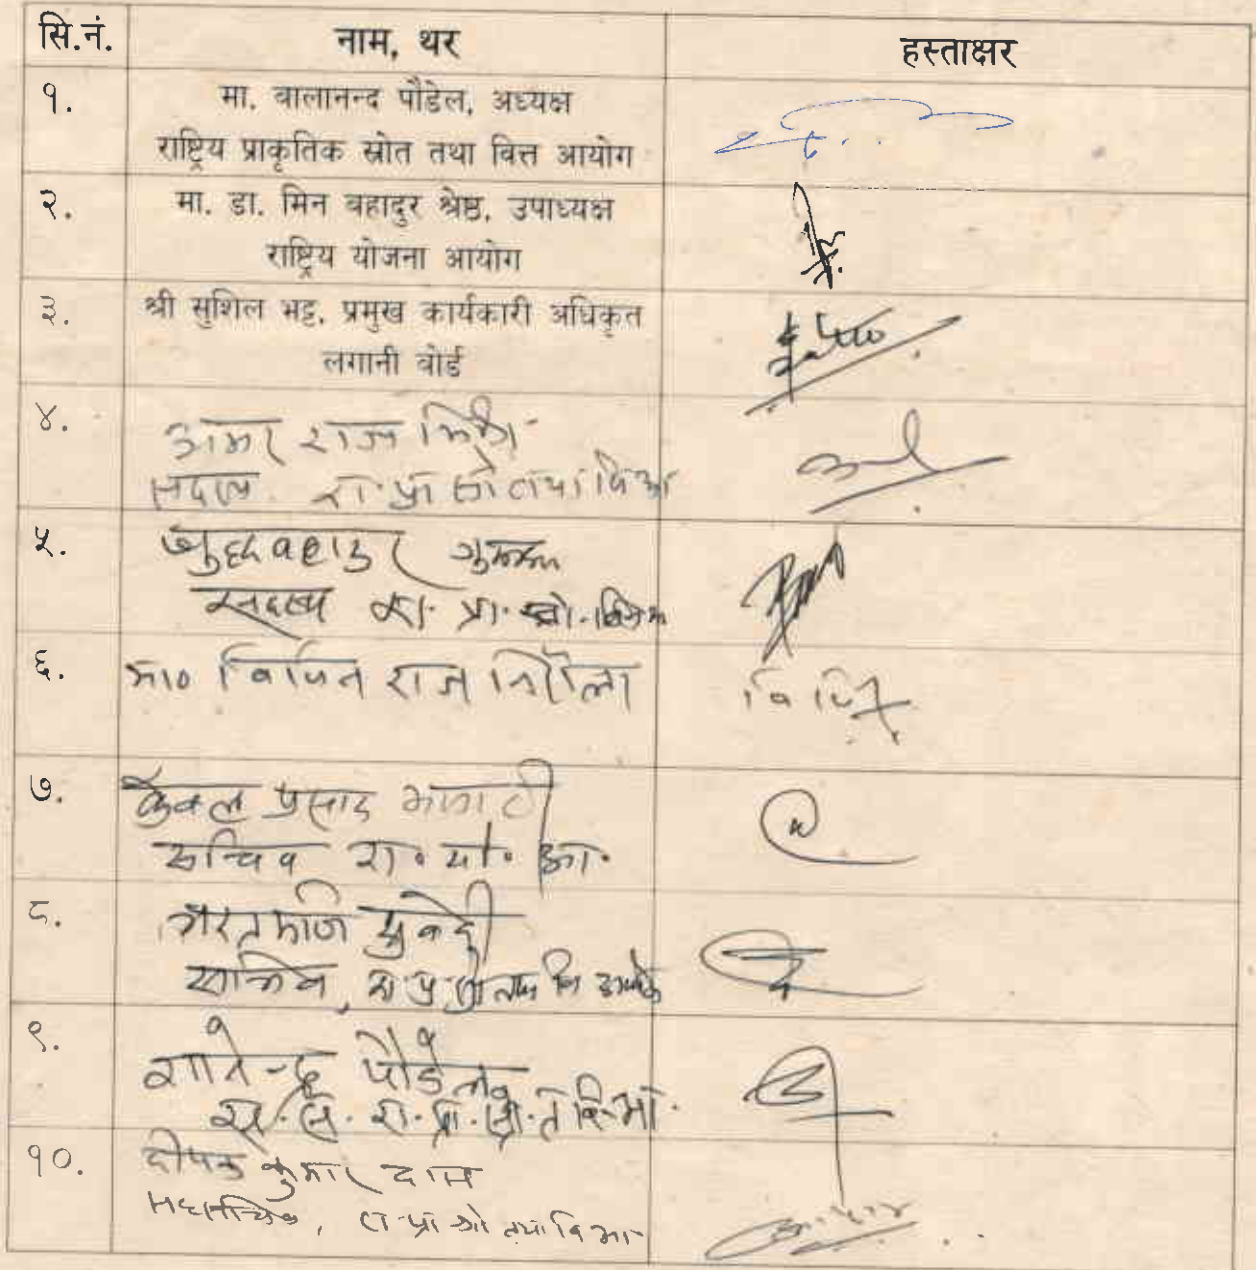 सि.नं. नाम, थर हस्ताक्षर
१. मा. वालानन्द पौडेल, अध्यक्ष
राष्ट्रिय प्राकृतिक स्रोत तथा वित्त आयोग
२. मा. डा. मिन वहादुर श्रेष्ठ, उपाध्यक्ष
राष्ट्रिय योजना आयोग
३. श्री सुशिल भट्ट, प्रमुख कार्यकारी अधिकृत
लगानी वोर्ड
४. अमर राज
सदस्य रा प्रा स्रो तथा वि आ
५. जुद्धवहादुर गुरूङ्ग
सदस्य रा. प्रा. स्रो.
६. मा० विपिन राज निरौला विपिन
७. केवल प्रसाद भण्डारी
सचिव रा. यो. आ.
८. भरतमणि सुवेदी
सचिव,
९. ज्ञानेन्द्र पौडेल
स. स. रा. प्रा. स्रो. त. वि. आ.
१०. दीपक कुमार दास
सहसचिव, रा प्रा स्रो तथा वि आ